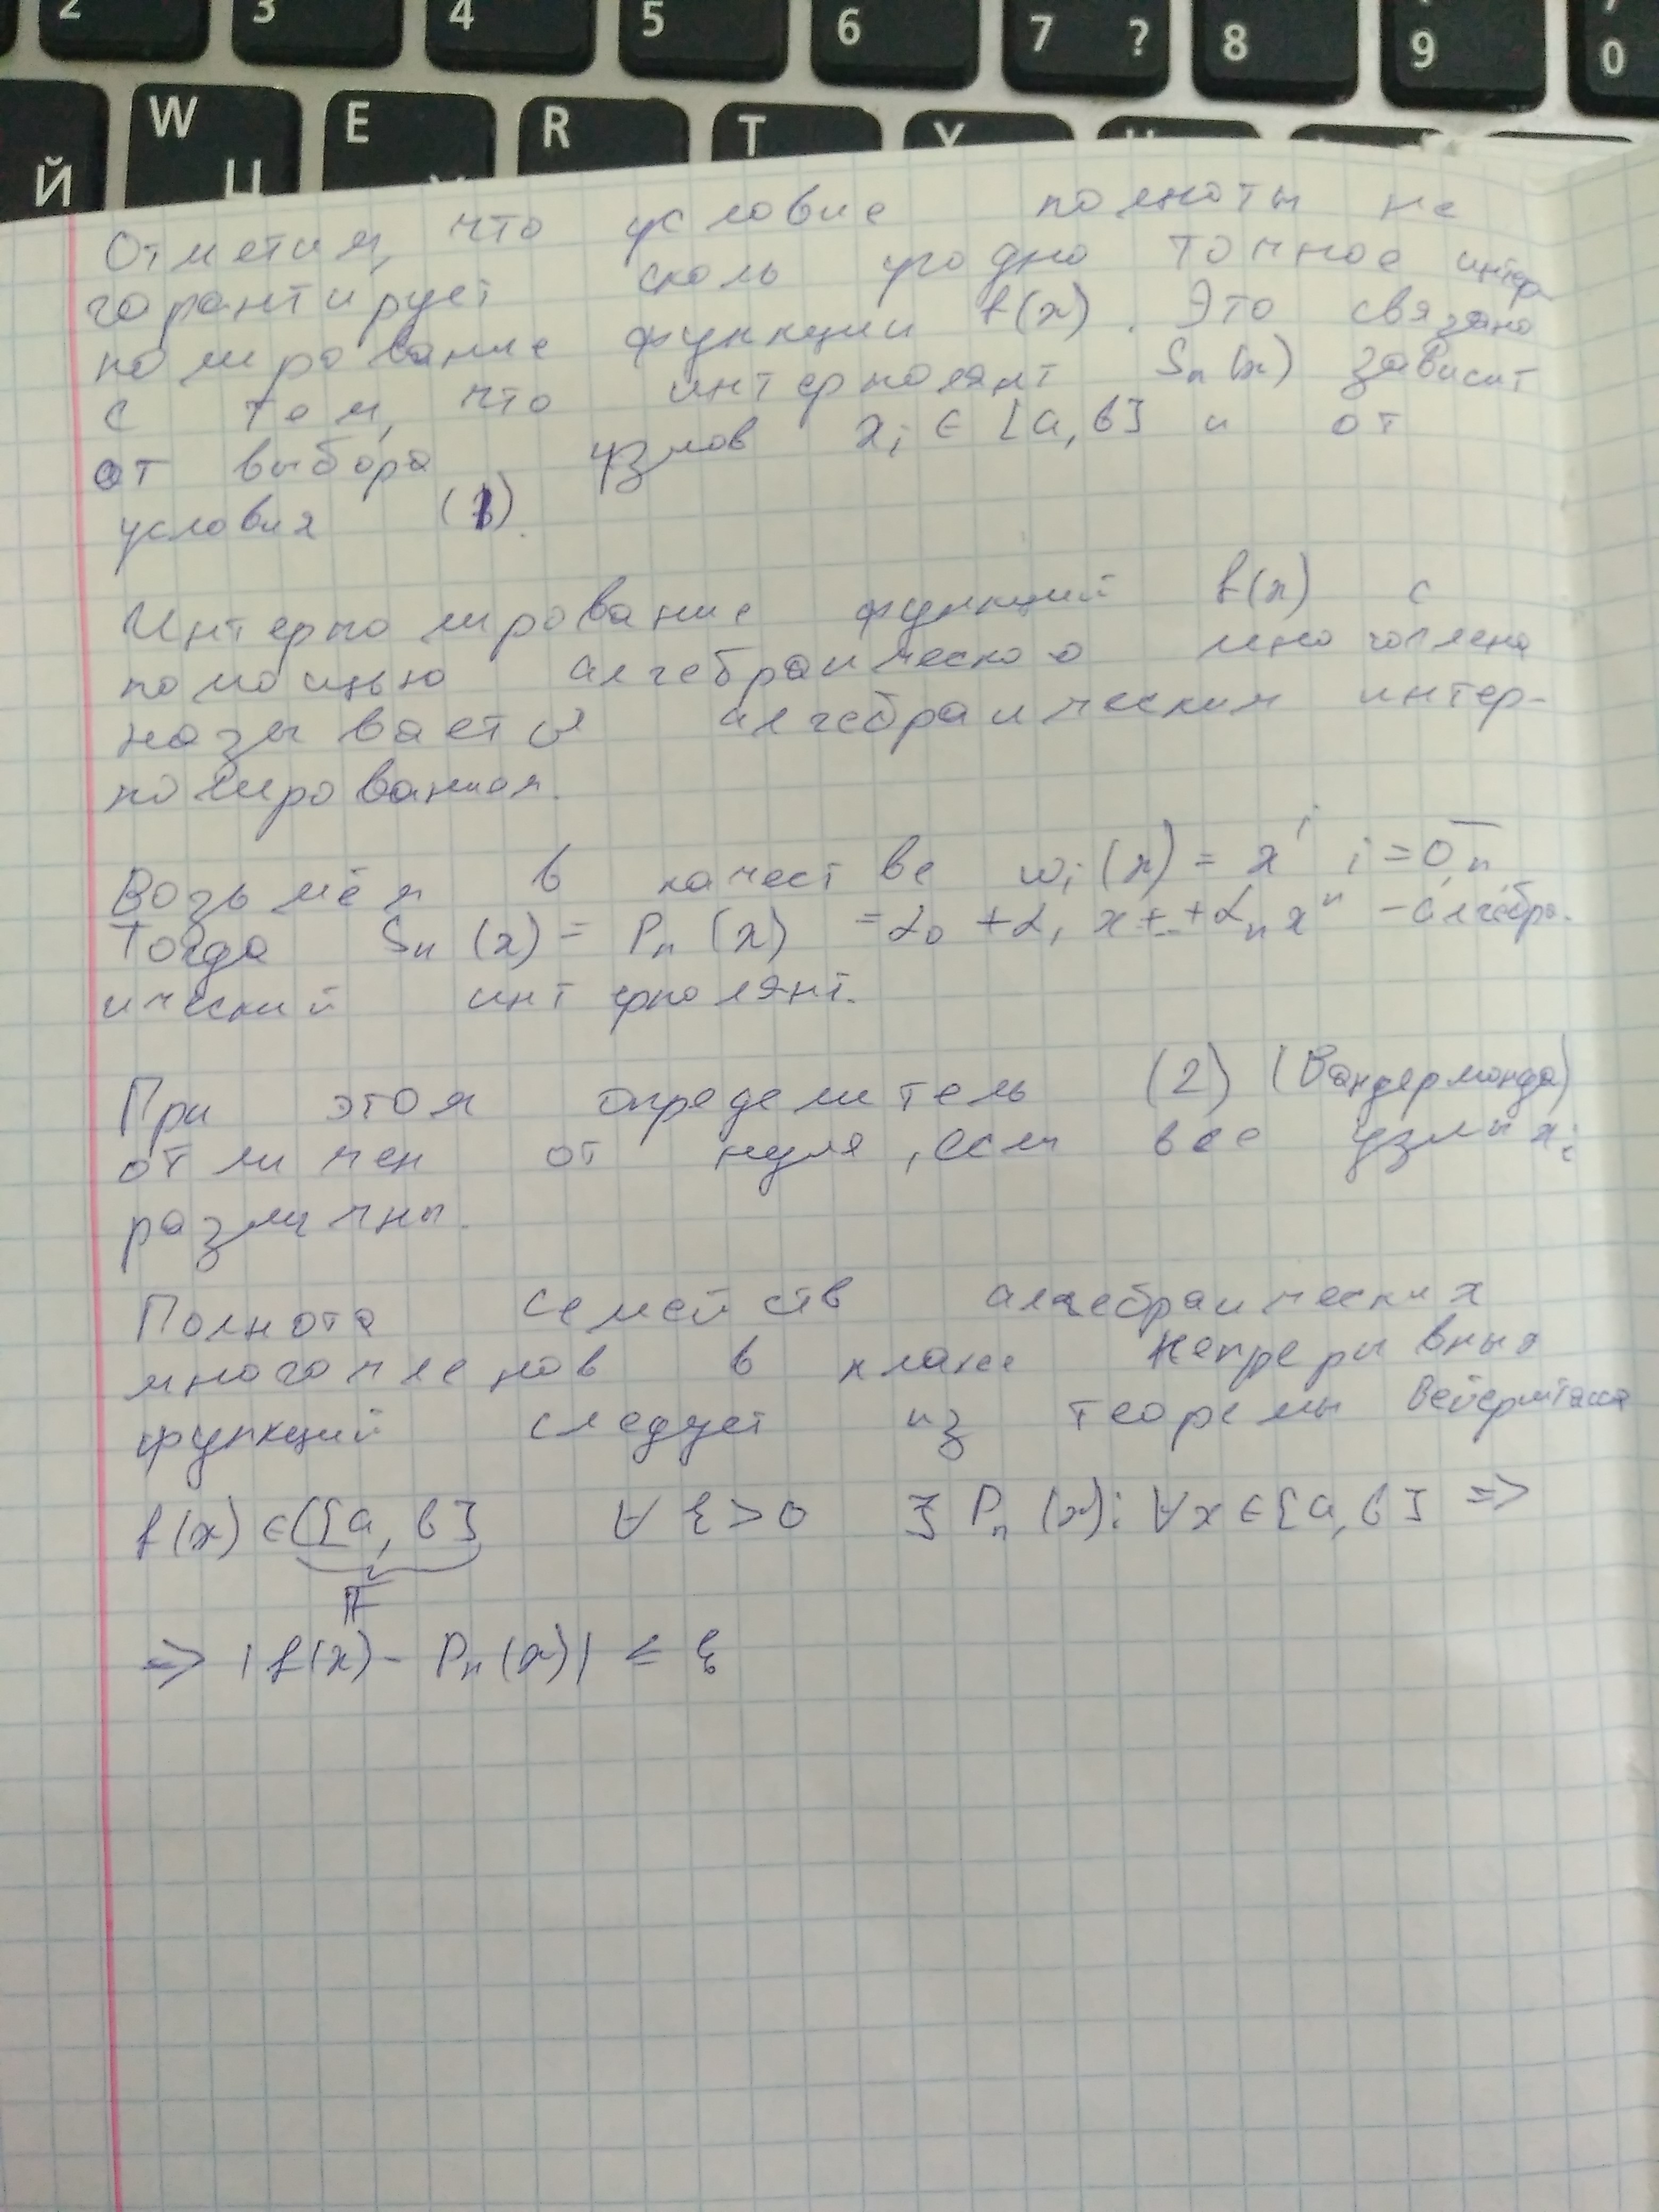 2 3 4 5 6 7 ? 8 9 0
W E R T Y
Й Ц
Отметим, что условие полноты не
гарантирует сколь угодно точное интер
полирование функции f(x). Это связано
с тем, что интерполянт Sₙ(x) зависит
от выбора узлов xᵢ ∈ [a, b] и от
условия (1).
Интерполирование функций f(x) с
помощью алгебраического многочлена
называется алгебраическим интер-
полированием.
Возьмём в качестве wᵢ(x) = xⁱ i = 0,n
Тогда Sₙ(x) = Pₙ(x) = α₀ + α₁ x + .. + αₙ xⁿ - алгебра-
ический интерполянт.
При этом определитель (2) (Вандермонда)
отличен от нуля, если все узлы xᵢ
различны.
Полнота семейств алгебраических
многочленов в классе непрерывных
функций следует из теоремы Вейерштасса
f(x) ∈ C[a, b] ∀ ξ > 0 ∃ Pₙ(x): ∀x ∈ [a, b] =>
F
=> |f(x) - Pₙ(x)| ≤ ξ